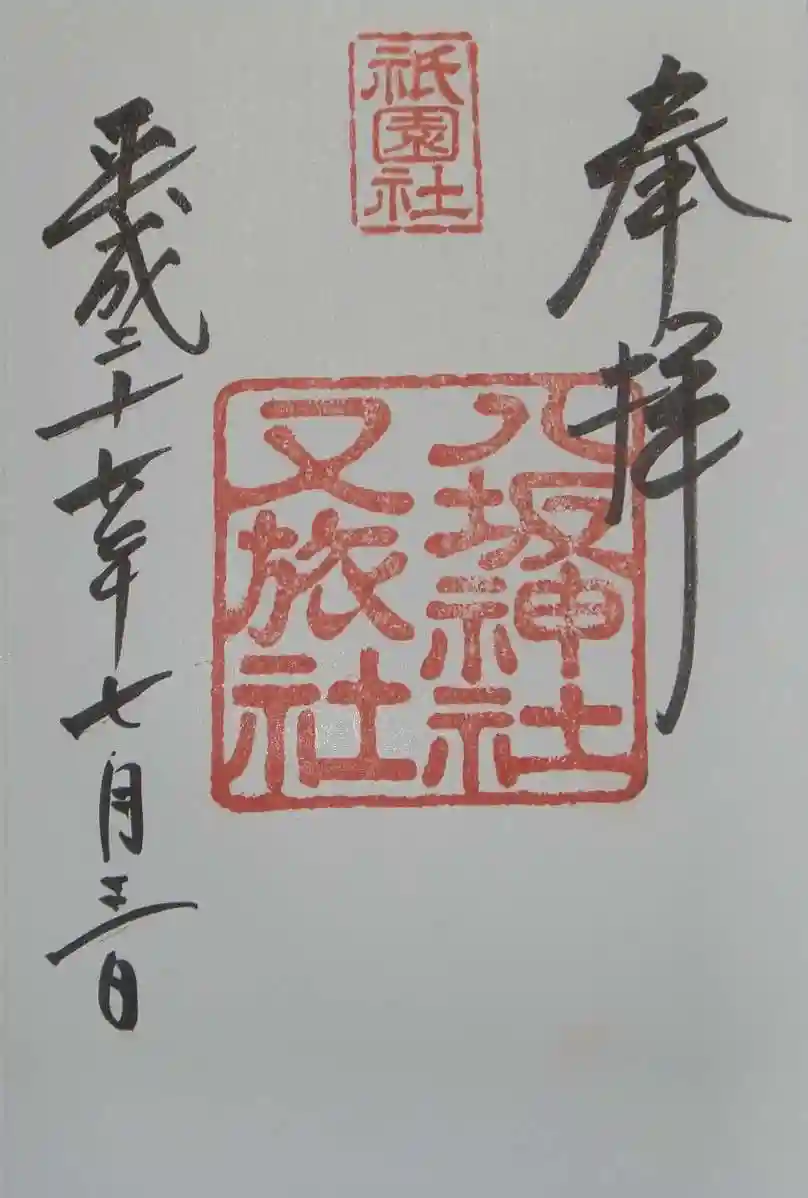 奉拝
祇園社
八坂神社
又旅社
平成二十七年七月十二日